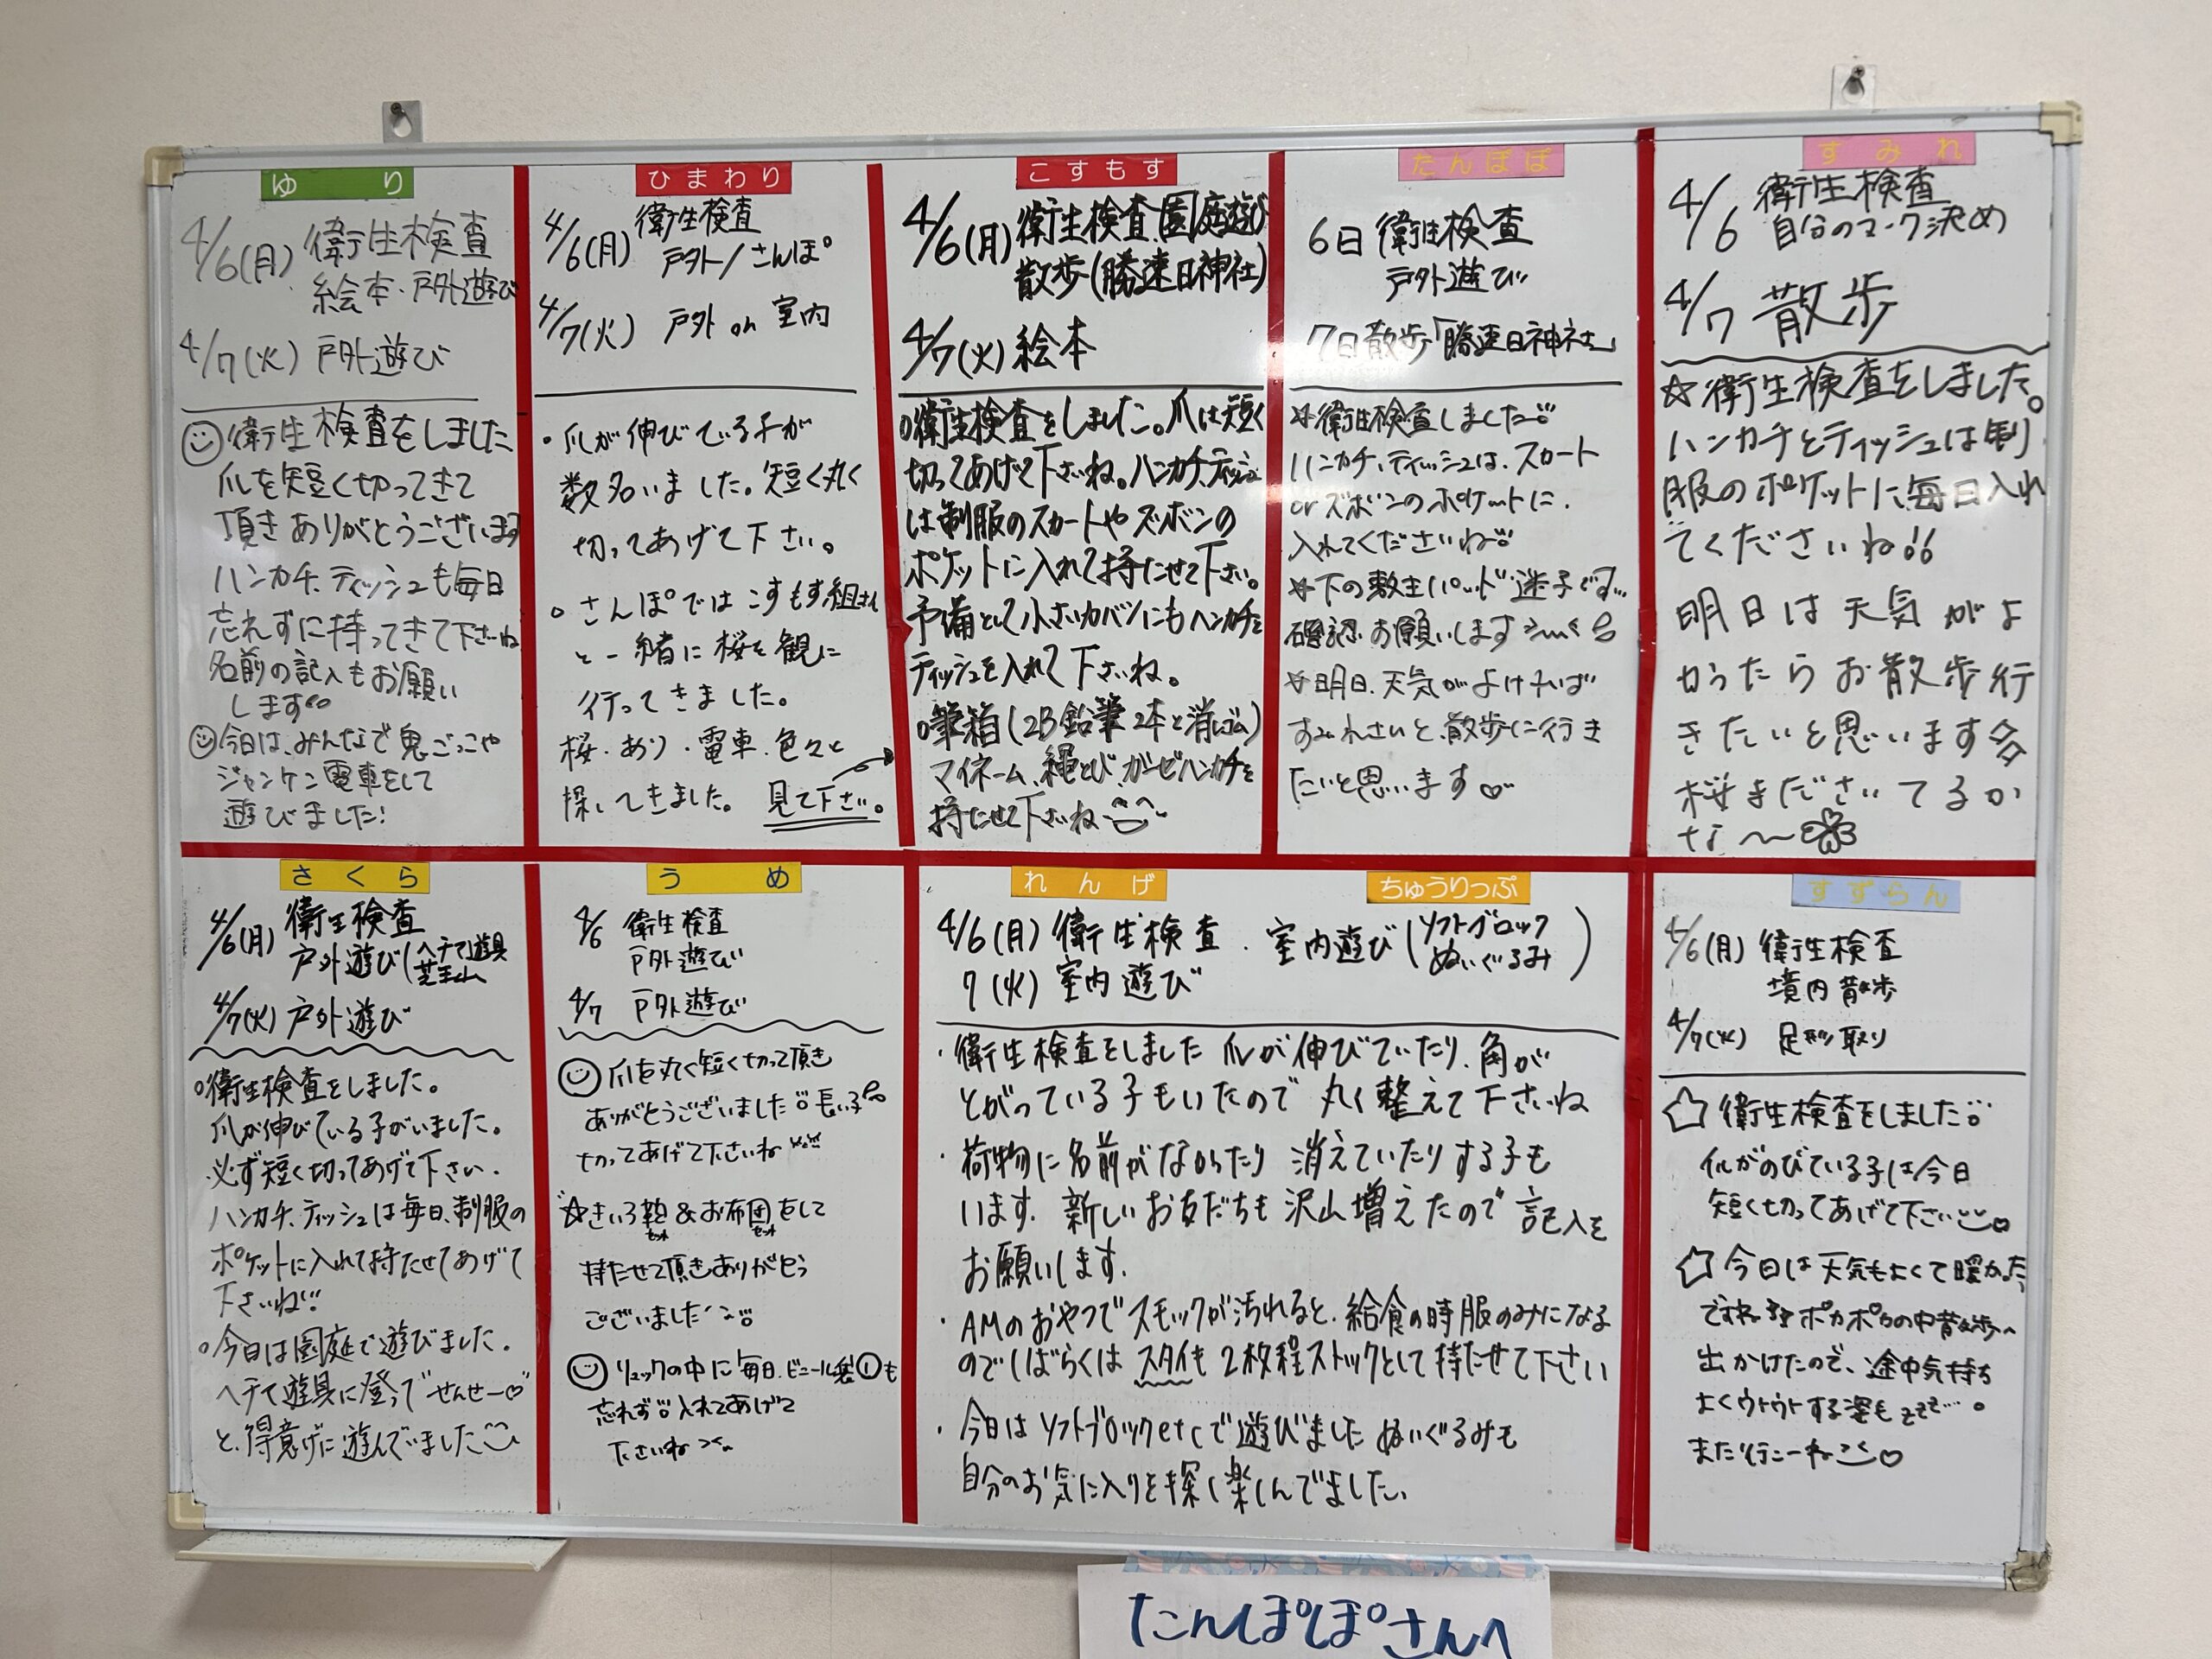 ゆり
4/6(月) 衛生検査
絵本・戸外遊び
4/7(火) 戸外遊び
衛生検査をしました
爪を短く切ってきて
頂きありがとうございます
ハンカチ、ティッシュも毎日
忘れずに持ってきて下さいね
名前の記入もお願い
します
今日は、みんなで鬼ごっこや
ジャンケン電車をして
遊びました!
ひまわり
4/6(月) 衛生検査
戸外/さんぽ
4/7(火) 戸外 or 室内
・爪が伸びている子が
数名いました。短く丸く
切ってあげて下さい。
○さんぽではこすもす組さん
と一緒に桜を観に
行ってきました。
桜・あり・電車・色々と
探してきました。 見て下さい。
こすもす
4/6(月) 衛生検査、園庭遊び
散歩(勝速日神社)
4/7(火) 絵本
○衛生検査をしました。爪は短く
切ってあげて下さいね。ハンカチ、ティッシュ
は制服のスカートやズボンの
ポケットに入れて持たせて下さい。
予備として小さいカバンにもハンカチと
ティッシュを入れて下さいね。
○筆箱(2B鉛筆2本と消しゴム)
マイネーム、縄とび、ガーゼハンカチを
持たせて下さいね
たんぽぽ
6日 衛生検査
戸外遊び
7日 散歩「勝速日神社」
☆衛生検査しました
ハンカチ、ティッシュは、スカート
orズボンのポケットに、
入れてくださいね
☆下の敷きパッド迷子です…
確認お願いします
☆明日、天気がよければ
すみれさんと、散歩に行き
たいと思います♡
すみれ
4/6 衛生検査
自分のマーク決め
4/7 散歩
☆衛生検査をしました。
ハンカチとティッシュは制
服のポケットに毎日入れ
てくださいね!!
明日は天気がよ
かったらお散歩行
きたいと思います
桜まださいてるか
な〜
さくら
4/6(月) 衛生検査
戸外遊び(ヘチマ遊具
芝生山
4/7(火) 戸外遊び
○衛生検査をしました。
爪が伸びている子がいました。
必ず短く切ってあげて下さい。
ハンカチ、ティッシュは毎日、制服の
ポケットに入れて持たせてあげて
下さいね!!
○今日は園庭で遊びました。
ヘチマ遊具に登って"せんせー♡"
と、得意げに遊んでいました
うめ
4/6 衛生検査
戸外遊び
4/7 戸外遊び
爪を丸く短く切って頂き
ありがとうございました 長い子
切ってあげて下さいね
☆きいろ鞄セット&お布団セットをして
持たせて頂きありがとう
ございました
リュックの中に毎日、ビニール袋①も
忘れず 入れてあげて
下さいね
れんげ ちゅうりっぷ
4/6(月) 衛生検査・室内遊び(ソフトブロック
ぬいぐるみ)
7(火) 室内遊び
・衛生検査をしました 爪が伸びていたり、角が
とがっている子もいたので 丸く整えて下さいね
・荷物に名前がなかったり 消えていたりする子も
います。新しいお友だちも沢山増えたので 記入を
お願いします。
・AMのおやつでスモックが汚れると、給食の時服のみになる
のでしばらくは スタイも2枚程ストックとして持たせて下さい
・今日はソフトブロックetcで遊びました ぬいぐるみも
自分のお気に入りを探し楽しんでました。
すずらん
4/6(月) 衛生検査
境内散歩
4/7(火) 足形取り
☆衛生検査をしました
爪がのびている子は今日
短く切ってあげて下さい♡
☆今日は天気もよくて暖かった
ですね ポカポカの中散歩へ
出かけたので、途中気持ち
よくウトウトする姿も zzz…。
また行こーね♡
たんぽぽさんへ